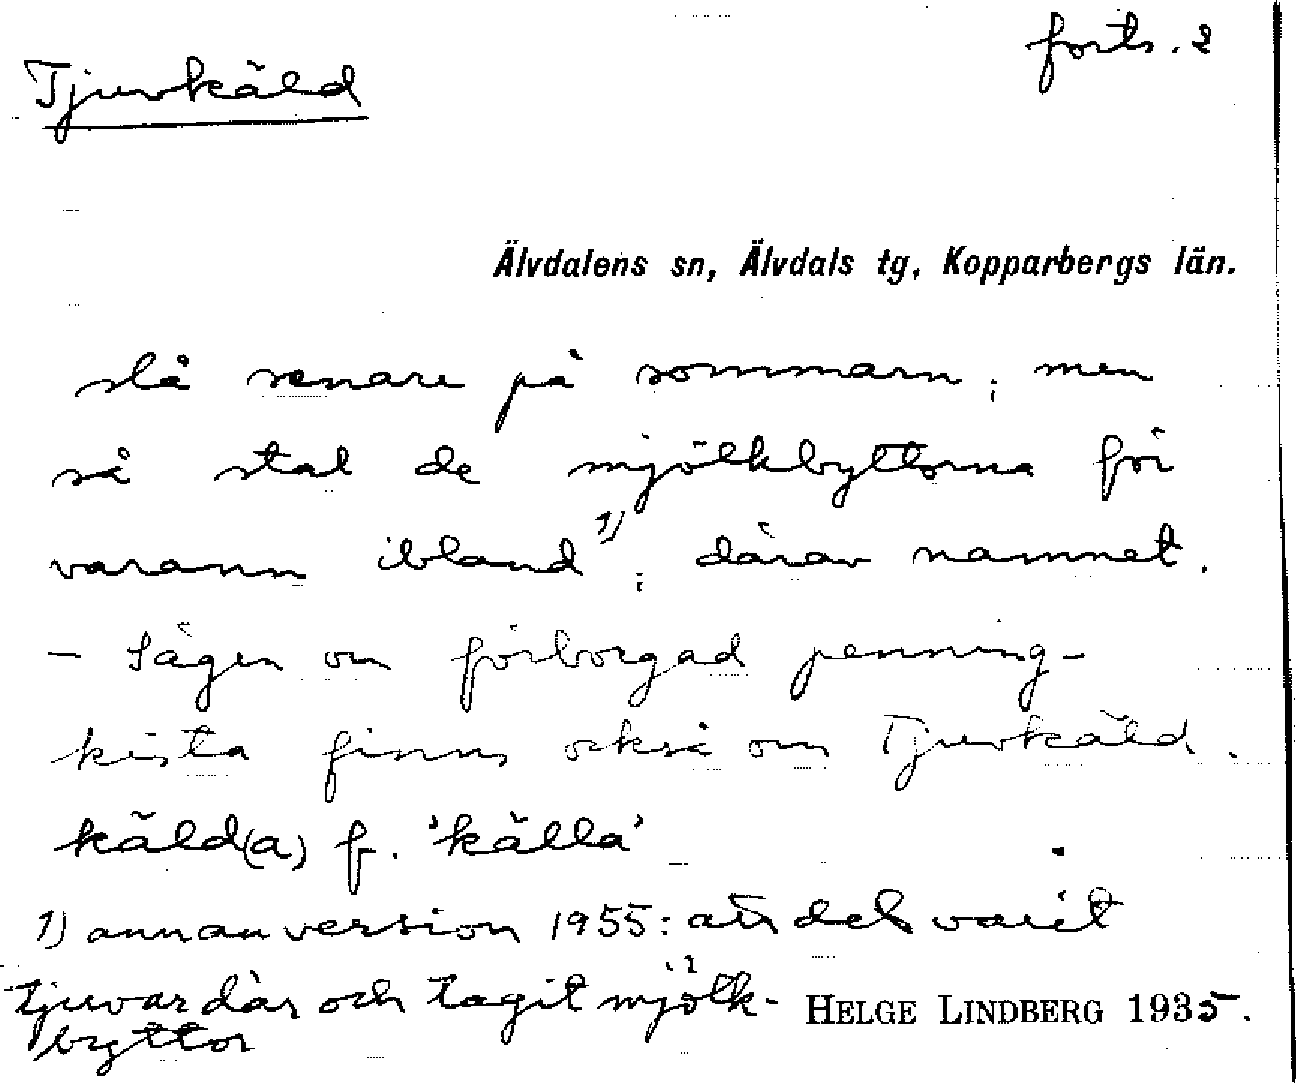 forts. 2
Tjuvkäld
Älvdalens sn, Älvdals tg, Kopparbergs län.
slå senare på sommarn; men
så stal de mjölkbyttorna för
varann ibland 1); därav namnet.
– Sägen om förborgad penning-
kista finns också om Tjuvkäld.
käld(a) f. 'källa'
1) annan version 1955: att det varit
tjuvar där och tagit mjölk-
byttor
HELGE LINDBERG 1935.